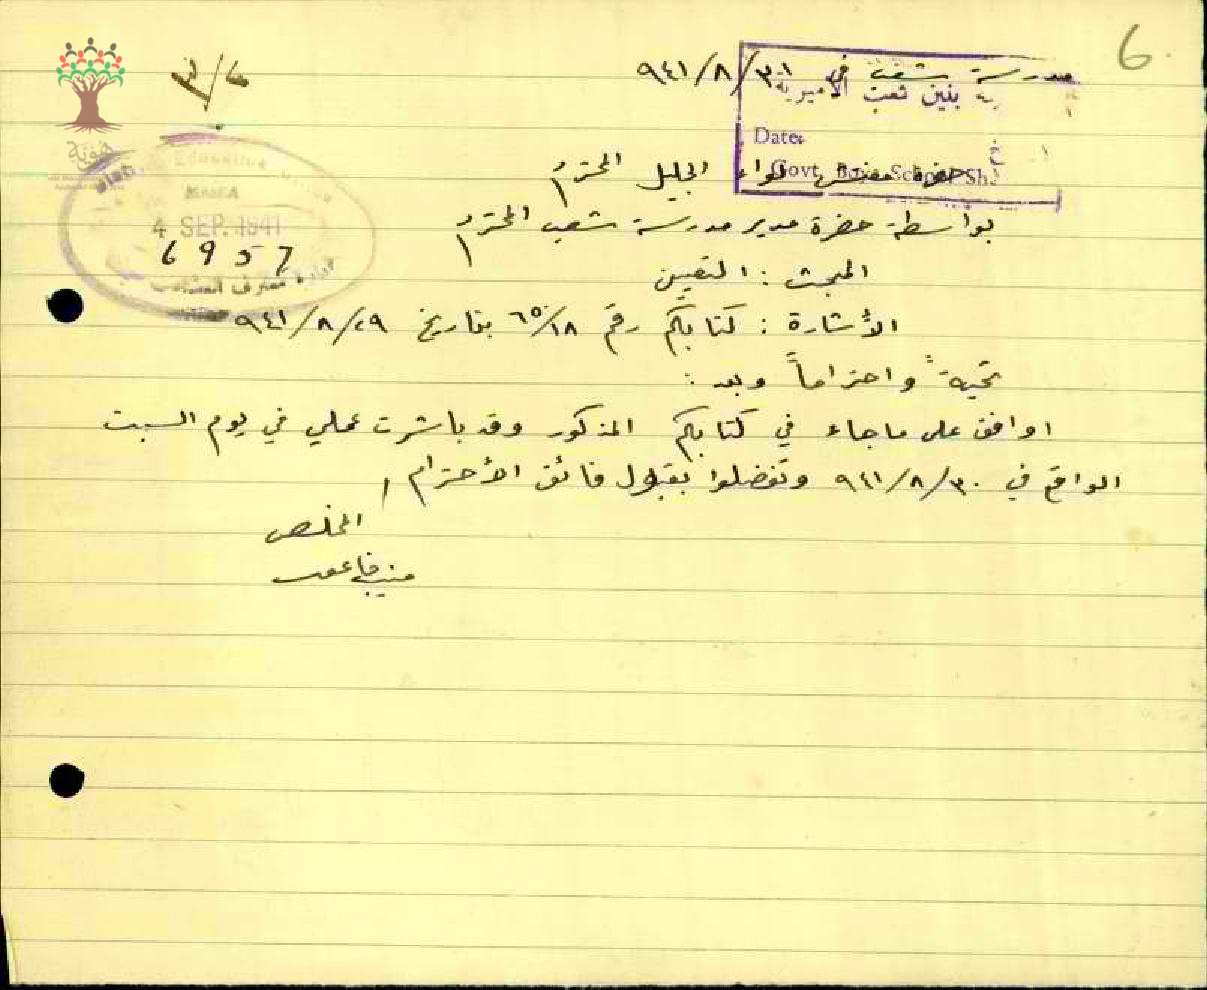 6
مدرسة شعب في ٣١/٨/٩٤١
بنين شعب الأميرية
Date:
Govt. Boys School Sh
حضرة مفتش لواء الجليل المحترم
بواسطة حضرة مدير مدرسة شعب المحترم
المبحث : التعيين
الأشارة : كتابكم رقم ٦٥/١٨ بتاريخ ٢٩/٨/٩٤١
تحية واحتراماً وبعد :
اوافق على ما جاء في كتابكم المذكور وقد باشرت عملي في يوم السبت
الواقع في ٣٠/٨/٩٤١ وتفضلوا بقبول فائق الأحترام
المخلص
هوية
Education Office
HAIFA
4 SEP. 1941
6957
ادارة معارف